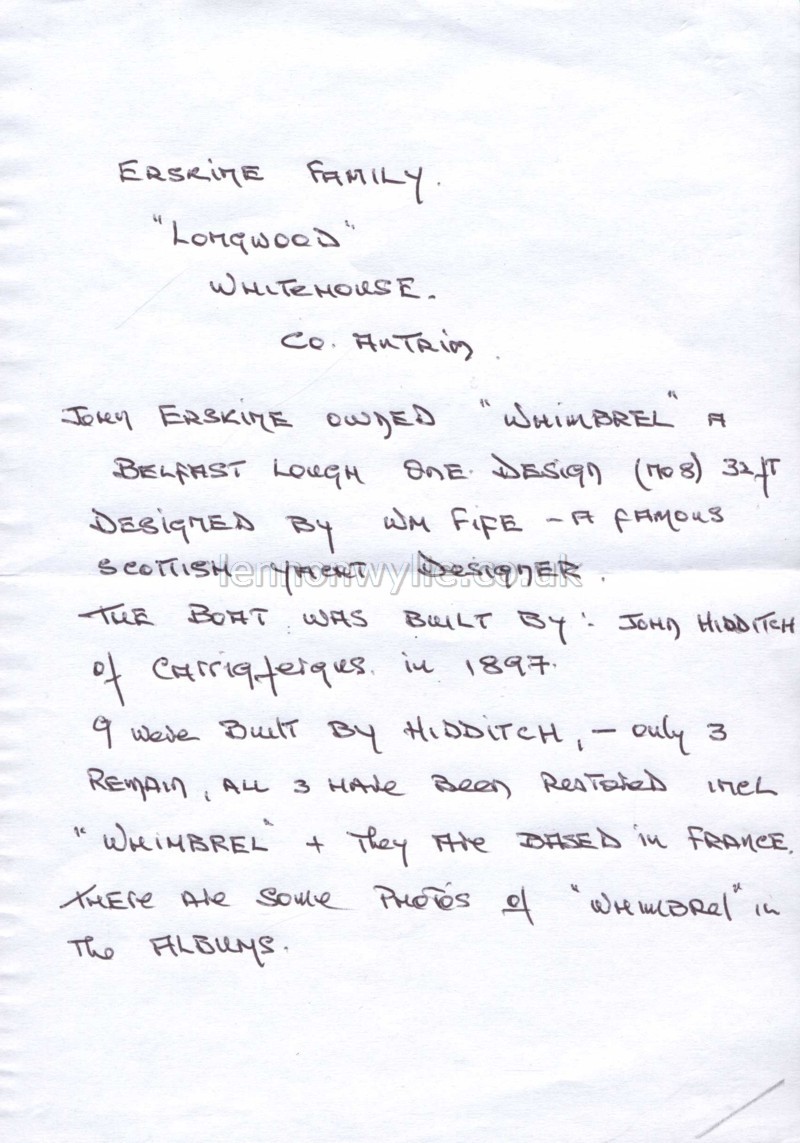 ERSKINE FAMILY.
"LONGWOOD"
WHITEHOUSE.
CO. ANTRIM.
JOHN ERSKINE OWNED "WHIMBREL" A
BELFAST LOUGH ONE DESIGN (NO 8) 32 ft
DESIGNED BY WM FIFE - A FAMOUS
SCOTTISH YACHT DESIGNER.
lennonwylie.co.uk
THE BOAT WAS BUILT BY: JOHN HIDDITCH
of Carrigfergus. in 1897.
9 were Built By HIDDITCH, - only 3
REMAIN, ALL 3 HAVE BEEN RESTORED INCL
"WHIMBREL" + They Are BASED in FRANCE.
THERE ARE SOME PHOTOS of "WHIMBREL" in
The ALBUMS.